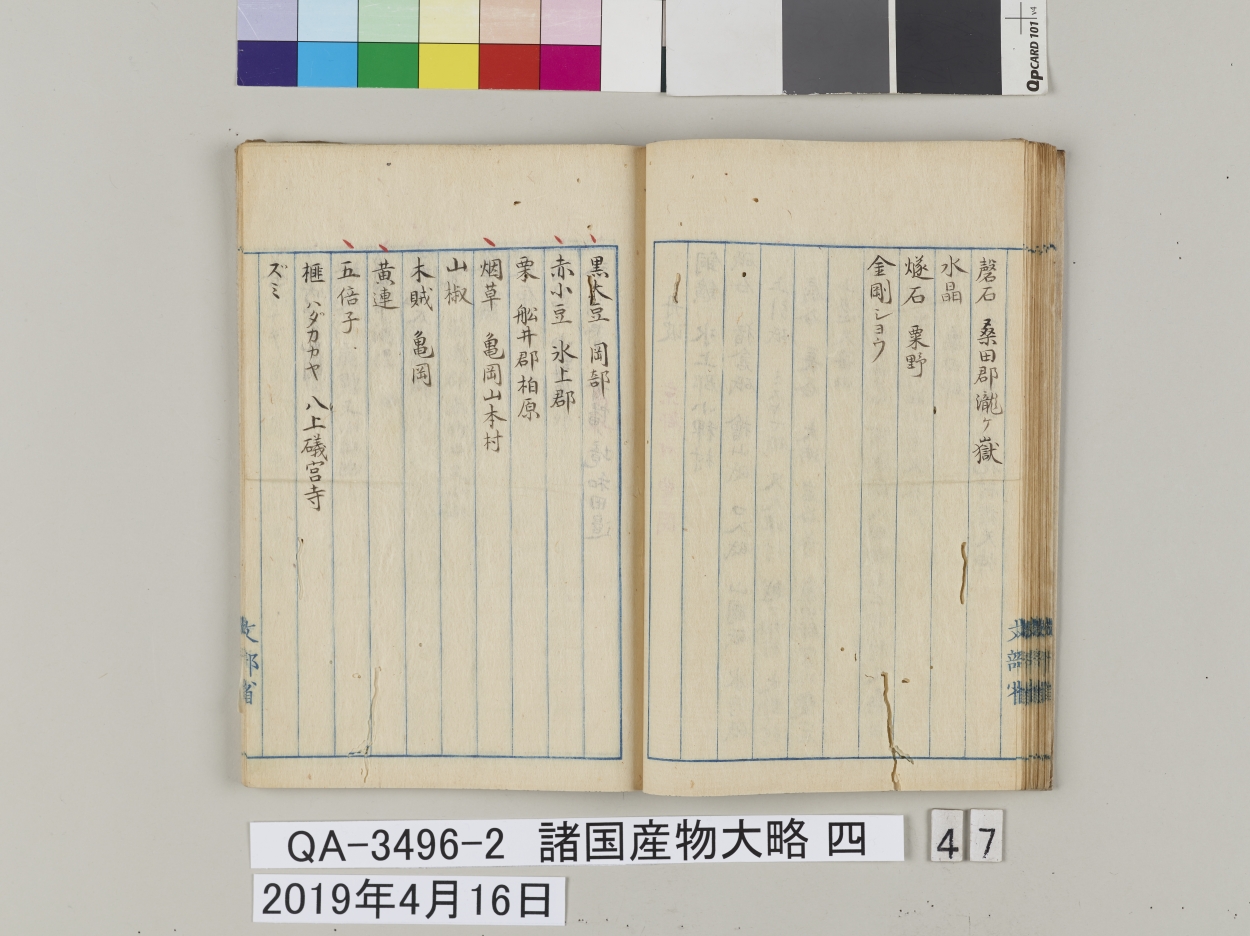 QPCARD 101 v4
磬石　桑田郡瀧ヶ嶽
水晶
燧石　粟野
金剛ショウ
文部省
黒大豆　岡部
赤小豆　氷上郡
栗　舩井郡柏原
烟草　亀岡山本村
山椒
木賊　亀岡
黄連
五倍子
榧　ハダカカヤ　八上礒宮寺
ズミ
文部省
QA-3496-2　諸国産物大略 四
47
2019年4月16日